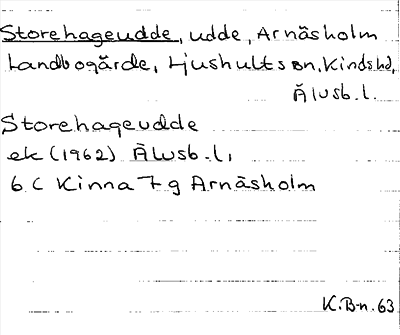 Storehageudde, udde, Arnäsholm
Landbogärde, Ljushults sn, Kinds hd,
Älvsb. l.
Storehageudde
ek (1962) Älvsb. l,
6 C Kinna 7 g Arnäsholm
K.B-n. 63